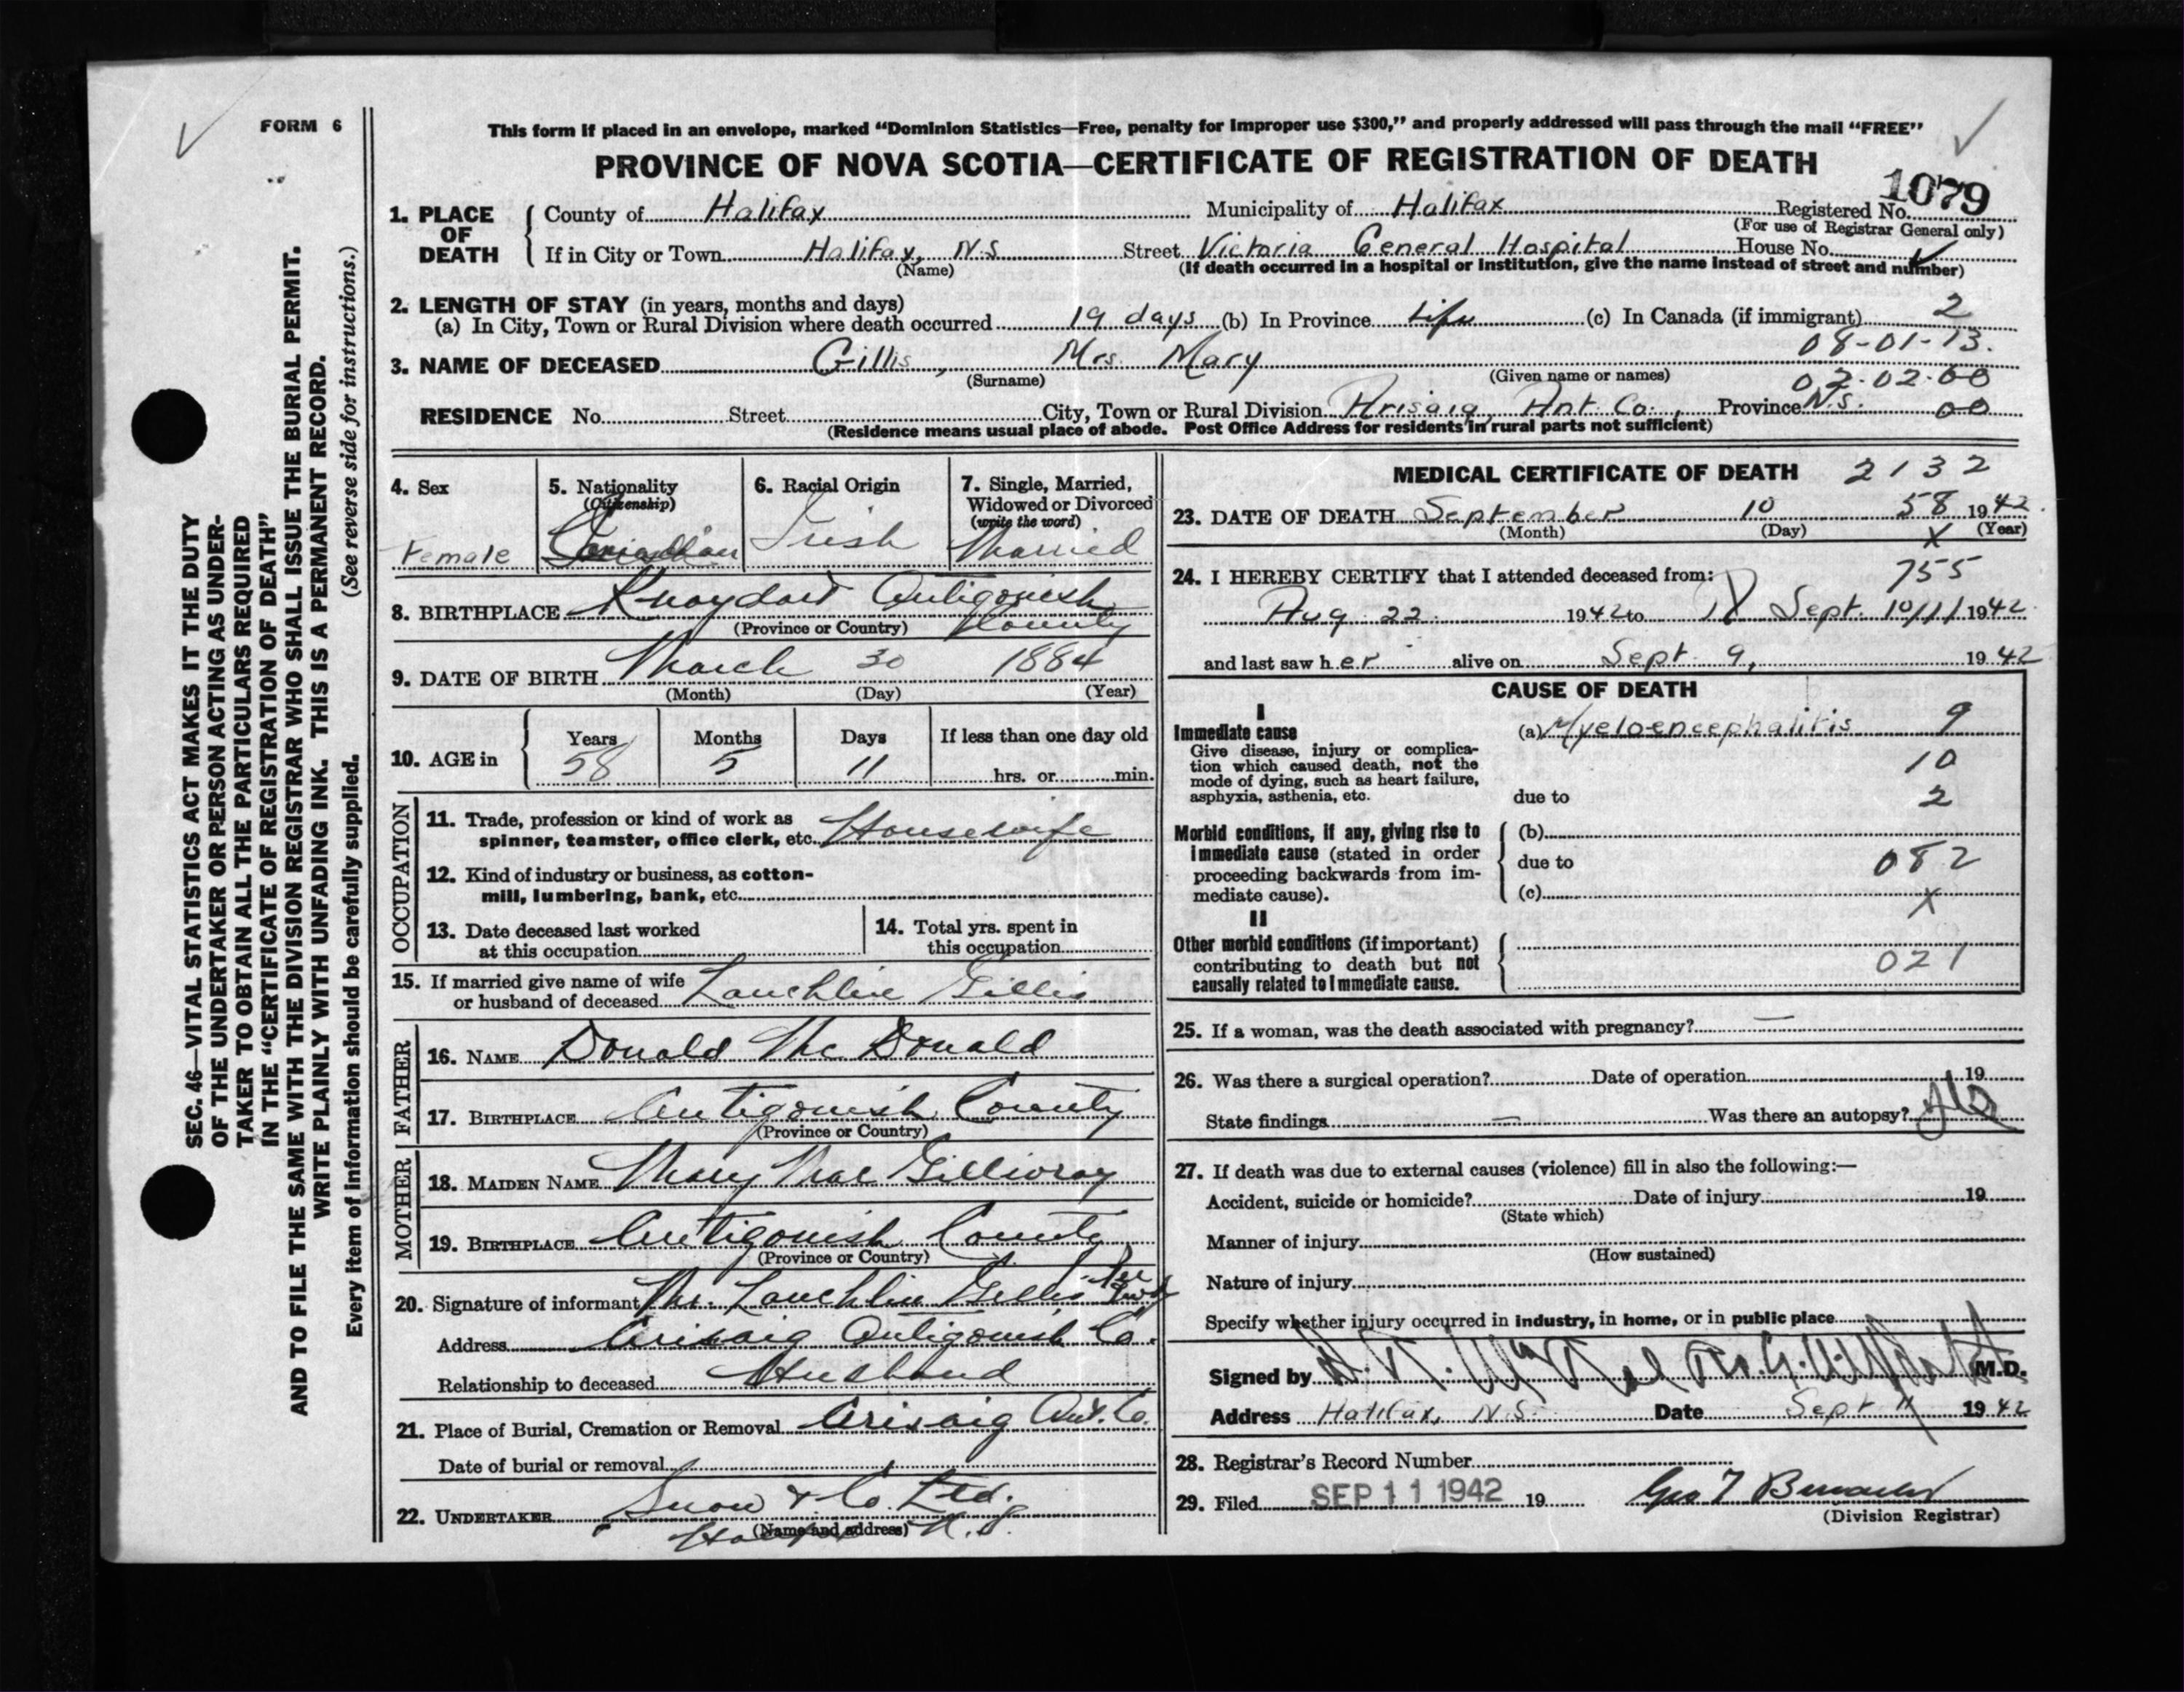 FORM 6
This form if placed in an envelope, marked “Dominion Statistics—Free, penalty for improper use $300,” and properly addressed will pass through the mail “FREE”
PROVINCE OF NOVA SCOTIA—CERTIFICATE OF REGISTRATION OF DEATH
1079
1. PLACE OF DEATH
County of Halifax Municipality of Halifax Registered No.
(For use of Registrar General only)
If in City or Town Halifax, N.S Street Victoria General Hospital House No.
(Name) (If death occurred in a hospital or institution, give the name instead of street and number)
2. LENGTH OF STAY (in years, months and days)
(a) In City, Town or Rural Division where death occurred 19 days (b) In Province Life (c) In Canada (if immigrant) 2
08-01-13.
3. NAME OF DECEASED Gillis, Mrs. Mary
(Surname) (Given name or names) 02-02-00
RESIDENCE No. Street City, Town or Rural Division Arisaig, Ant. Co., Province N.S. 00
(Residence means usual place of abode. Post Office Address for residents in rural parts not sufficient)
4. Sex
Female
5. Nationality
(Citizenship)
Canadian
6. Racial Origin
Irish
7. Single, Married,
Widowed or Divorced
(write the word)
Married
8. BIRTHPLACE Knoydart Antigonish
(Province or Country) County
9. DATE OF BIRTH March 30 1884
(Month) (Day) (Year)
10. AGE in
Years Months Days If less than one day old
58 5 11 hrs. or min.
OCCUPATION
11. Trade, profession or kind of work as
spinner, teamster, office clerk, etc. Housewife
12. Kind of industry or business, as cotton-
mill, lumbering, bank, etc.
13. Date deceased last worked
at this occupation
14. Total yrs. spent in
this occupation
15. If married give name of wife
or husband of deceased Lauchlin Gillis
FATHER
16. NAME Donald Mc Donald
17. BIRTHPLACE Antigonish County
(Province or Country)
MOTHER
18. MAIDEN NAME Mary Mac Gillivray
19. BIRTHPLACE Antigonish County
(Province or Country)
20. Signature of informant Mr. Lauchlin Gillis Per
Address Arisaig Antigonish Co.
Relationship to deceased Husband
21. Place of Burial, Cremation or Removal Arisaig Ant. Co.
Date of burial or removal
22. UNDERTAKER Snow & Co. Ltd.
(Name and address) Halifax N.S.
MEDICAL CERTIFICATE OF DEATH 2132
23. DATE OF DEATH September 10 58 1942
(Month) (Day) X (Year)
24. I HEREBY CERTIFY that I attended deceased from: 755
Aug 22 1942 to Sept. 10/11 1942
and last saw her alive on Sept 9, 1942
CAUSE OF DEATH
I
Immediate cause
Give disease, injury or complica-
tion which caused death, not the
mode of dying, such as heart failure,
asphyxia, asthenia, etc.
(a) Myeloencephalitis 9
10
due to 2
Morbid conditions, if any, giving rise to
immediate cause (stated in order
proceeding backwards from im-
mediate cause).
(b)
due to 082
(c)
X
II
Other morbid conditions (if important)
contributing to death but not
causally related to immediate cause.
021
25. If a woman, was the death associated with pregnancy? —
26. Was there a surgical operation? Date of operation 19
State findings — Was there an autopsy? No
27. If death was due to external causes (violence) fill in also the following:—
Accident, suicide or homicide? Date of injury 19
(State which)
Manner of injury
(How sustained)
Nature of injury
Specify whether injury occurred in industry, in home, or in public place
Signed by M.D.
Address Halifax, N.S. Date Sept 11 1942
28. Registrar's Record Number
29. Filed SEP 11 1942 19 Geo
(Division Registrar)
SEC. 46—VITAL STATISTICS ACT MAKES IT THE DUTY
OF THE UNDERTAKER OR PERSON ACTING AS UNDER-
TAKER TO OBTAIN ALL THE PARTICULARS REQUIRED
IN THE “CERTIFICATE OF REGISTRATION OF DEATH”
AND TO FILE THE SAME WITH THE DIVISION REGISTRAR WHO SHALL ISSUE THE BURIAL PERMIT.
WRITE PLAINLY WITH UNFADING INK. THIS IS A PERMANENT RECORD.
Every item of information should be carefully supplied. (See reverse side for instructions.)